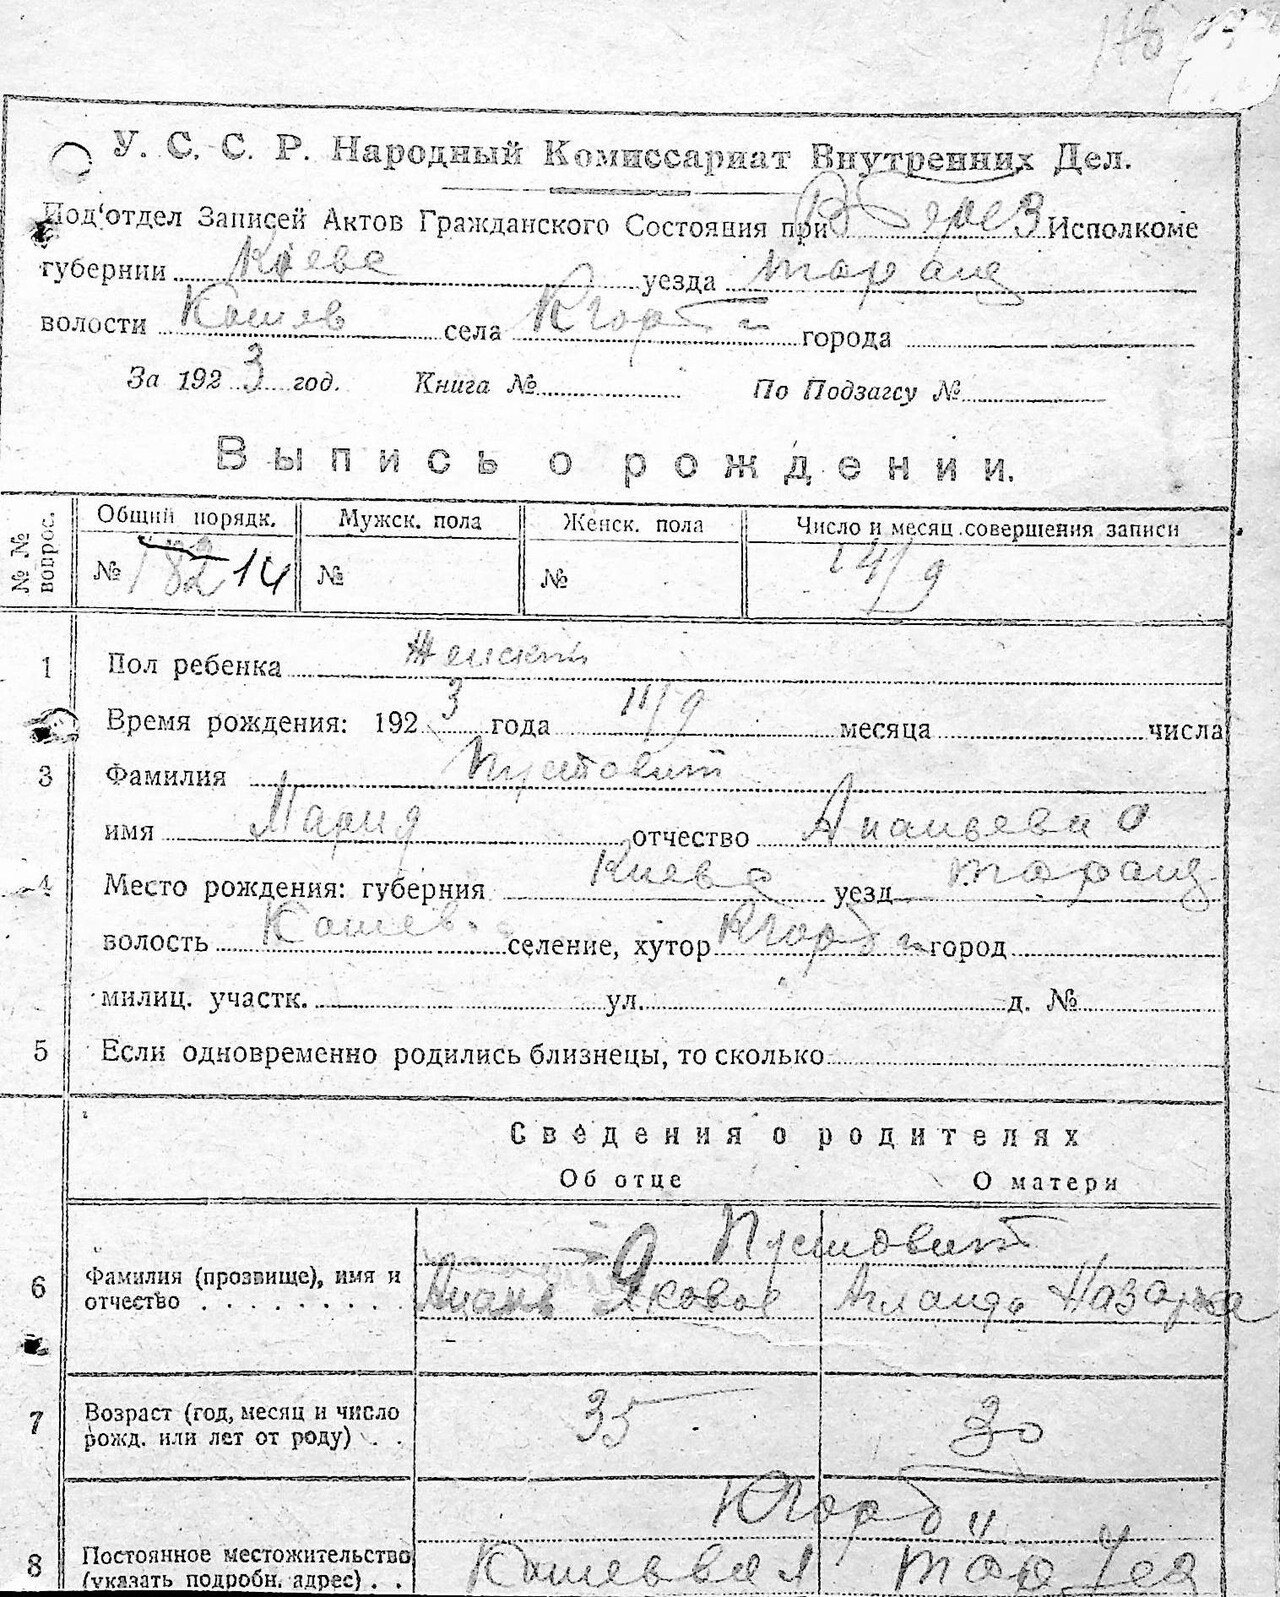 178
У. С. С. Р. Народный Комиссариат Внутренних Дел.
Под'отдел Записей Актов Гражданского Состояния при Исполкоме
губернии Киевс уезда таращ
волости Кошев села города
За 1923 год. Книга № По Подзагсу №
Выпись о рождении.
№ № вопрос. Общий порядк. Мужск. пола Женск. пола Число и месяц совершения записи
№ 182 14 № № 14/9
1 Пол ребенка Женский
Время рождения: 1923 года 11/9 месяца числа
3 Фамилия Пустовит
имя Мария отчество Ананьевна
4 Место рождения: губерния Киевс уезд таращ
волость Кошев. селение, хутор город
милиц. участк. ул. д. №
5 Если одновременно родились близнецы, то сколько
Сведения о родителях
Об отце О матери
Пустовит
6 Фамилия (прозвище), имя и отчество . . . . . . . . . Анань Яковов Аглаида Назарова
7 Возраст (год, месяц и число рожд. или лет от роду) . . 35 30
8 Постоянное местожительство (указать подробн. адрес) . . Кошевская